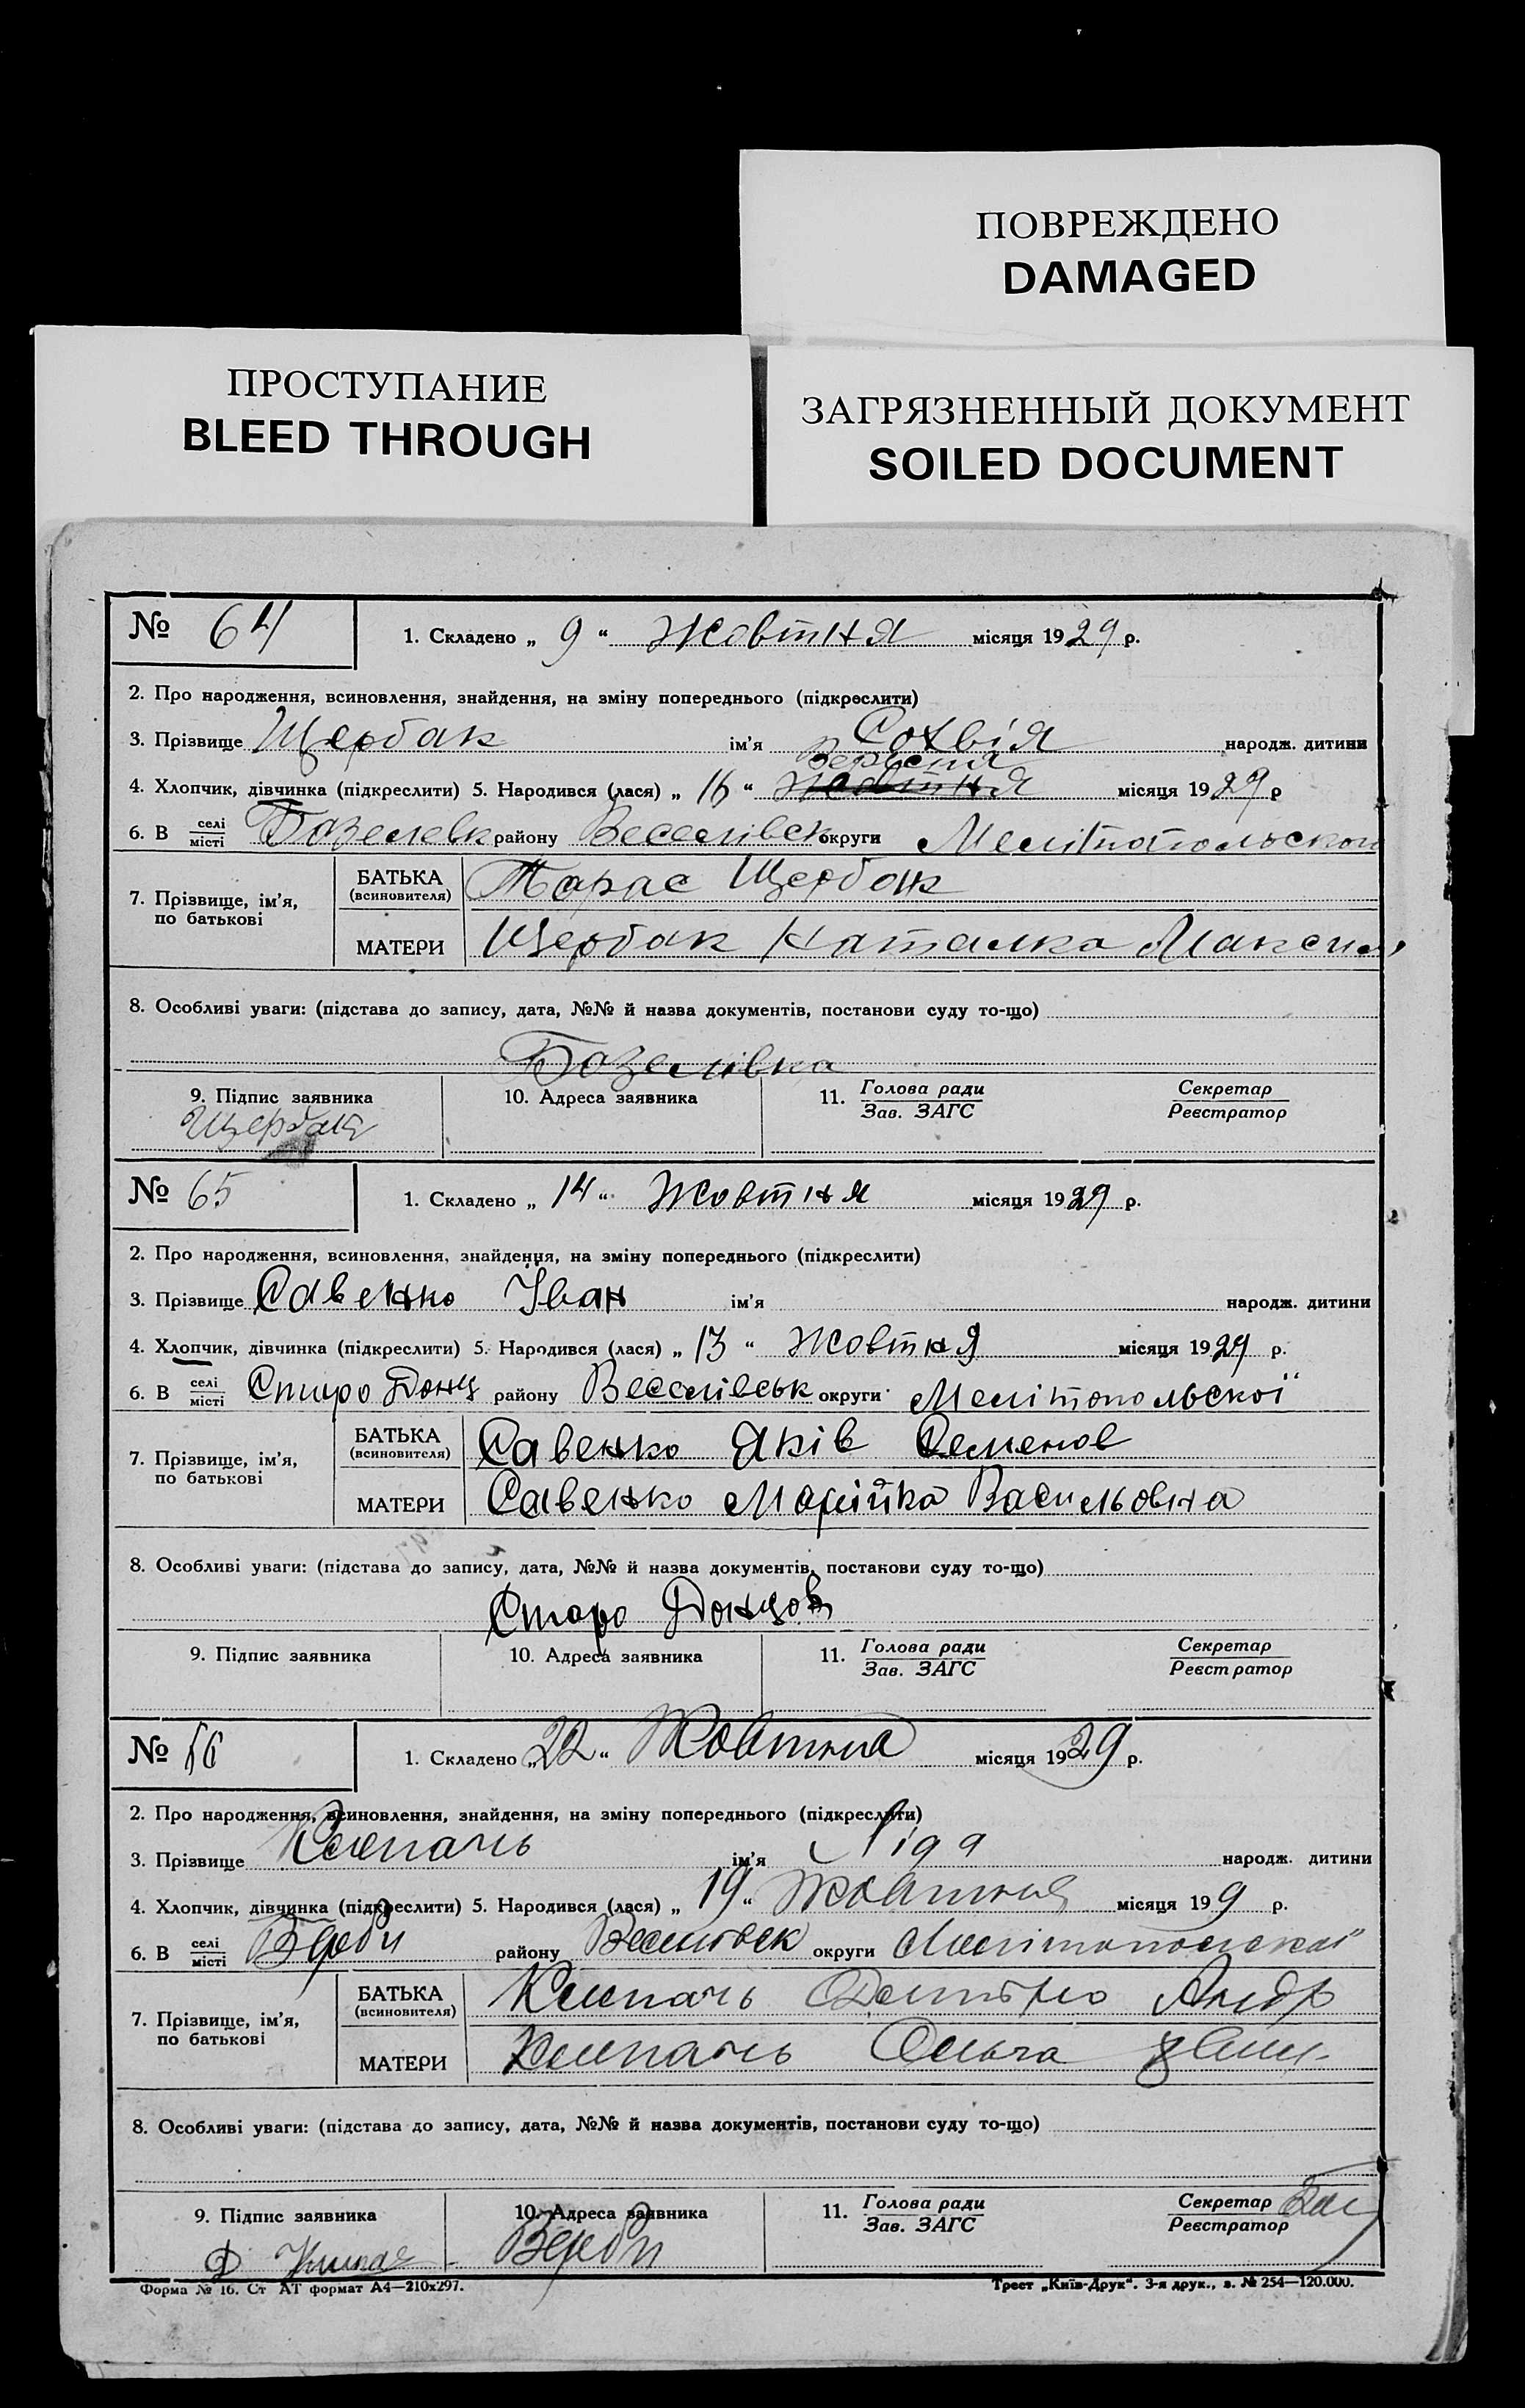 ПОВРЕЖДЕНО
DAMAGED
ПРОСТУПАНИЕ
BLEED THROUGH
ЗАГРЯЗНЕННЫЙ ДОКУМЕНТ
SOILED DOCUMENT
№ 64 1. Складено „ 9 “ Жовтня місяця 1929 р.
2. Про народження, всиновлення, знайдення, на зміну попереднього (підкреслити)
3. Прізвище Щербак ім'я Софвія народж. дитини
Вересня
4. Хлопчик, дівчинка (підкреслити) 5. Народився (лася) „ 16 “ Жовтня місяця 1929 р
6. В селі місті Базелевк району Веселівськ округи Мелітопольської
7. Прізвище, ім'я, по батькові
БАТЬКА (всиновителя) Тарас Щербак
МАТЕРИ Щербак Наталка Максим
8. Особливі уваги: (підстава до запису, дата, №№ й назва документів, постанови суду то-що)
Базелівка
9. Підпис заявника 10. Адреса заявника 11. Голова ради Зав. ЗАГС Секретар Реєстратор
Щербак
№ 65 1. Складено „ 14 “ Жовтня місяця 1929 р.
2. Про народження, всиновлення, знайдення, на зміну попереднього (підкреслити)
3. Прізвище Савенко Іван ім'я народж. дитини
4. Хлопчик, дівчинка (підкреслити) 5. Народився (лася) „ 13 “ Жовтня місяця 1929 р.
6. В селі місті Старо Донц району Веселівськ округи Мелітопольскої
7. Прізвище, ім'я, по батькові
БАТЬКА (всиновителя) Савенко Яків Семенов
МАТЕРИ Савенко Марійка Васильовна
8. Особливі уваги: (підстава до запису, дата, №№ й назва документів, постанови суду то-що)
Старо Донцов
9. Підпис заявника 10. Адреса заявника 11. Голова ради Зав. ЗАГС Секретар Реєстратор
№ 66 1. Складено „ 22 “ Жовтня місяця 1929 р.
2. Про народження, всиновлення, знайдення, на зміну попереднього (підкреслити)
3. Прізвище Клепачь ім'я Ліда народж. дитини
4. Хлопчик, дівчинка (підкреслити) 5. Народився (лася) „ 19 “ Жовтня місяця 199 р.
6. В селі місті Верби району Веселовск округи Мелітопольскої
7. Прізвище, ім'я, по батькові
БАТЬКА (всиновителя) Клепачь Дмитро Андр
МАТЕРИ Клепачь Ольга
8. Особливі уваги: (підстава до запису, дата, №№ й назва документів, постанови суду то-що)
9. Підпис заявника 10. Адреса заявника 11. Голова ради Зав. ЗАГС Секретар Реєстратор
Д Верби
Форма № 16. Ст АТ формат А4—210х297. Трест „Київ-Друк“. 3-я друк., з. № 254—120.000.